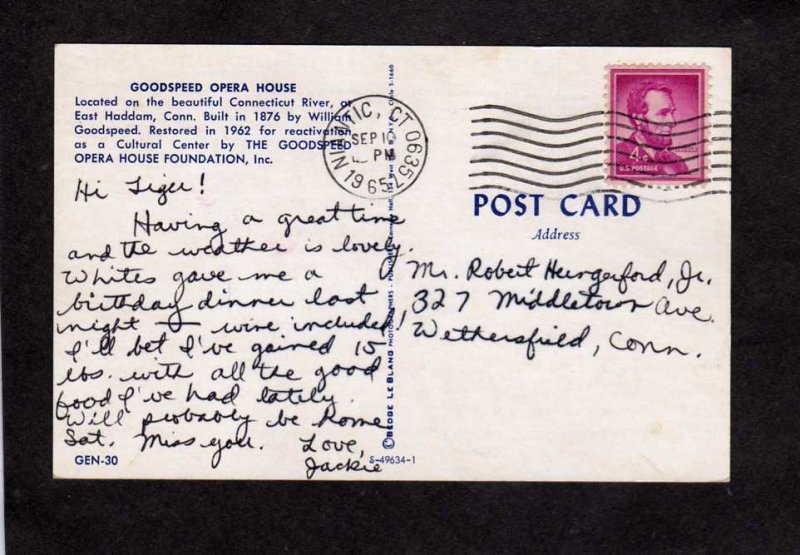 GOODSPEED OPERA HOUSE
Located on the beautiful Connecticut River, at
East Haddam, Conn. Built in 1876 by William
Goodspeed. Restored in 1962 for reactivation
as a Cultural Center by THE GOODSPEED
OPERA HOUSE FOUNDATION, Inc.
Hi Tiger!
Having a great time
and the weather is lovely.
Whites gave me a
birthday dinner last
night - wine included!
I'll bet I've gained 15
lbs. with all the good
food I've had lately.
Will probably be home
Sat. Miss you. Love,
Jackie
GEN-30
S-49634-1
© BEDGE LE BLANG PHOTOGRAPHERS
NIANTIC, CT 06357
SEP
PM
1965
4¢
U.S. POSTAGE
POST CARD
Address
Mr. Robert Hungerford, Jr.
327 Middletown Ave.
Wethersfield, Conn.